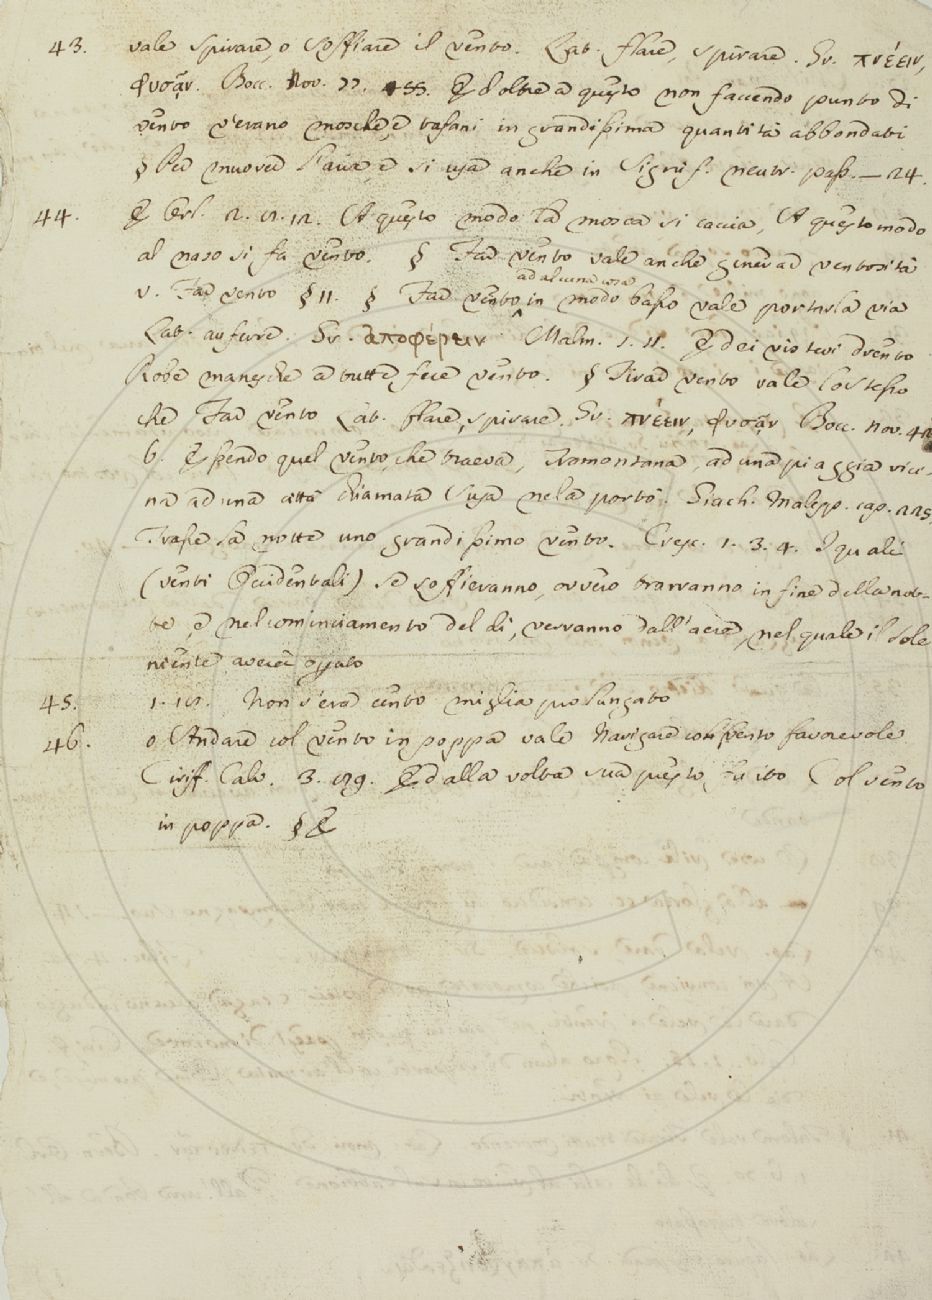 43. vale spirare, o soffiare il vento. Lat. flare, spirare. Gr. πνέειν,
φυσᾷν. Bocc. Nov. 77. 455. E d'oltre a questo non faccendo punto di
vento v'erano mosche, e tafani in grandissima quantità abbondati
§ Per muover l'aria, e si usa anche in signif. neutr. pass. — 24.
44. E Bel. 2. 12. A questo modo la mosca si caccia, A questo modo
al naso si fa vento. § Far vento vale anche generar ventosità
v. Far vento § 11. § Far vento ad alcuna cosa in modo basso vale portarla via
Lat. auferre. Gr. ἀποφέρειν Malm. 1. 11. E dei vestevi drento
Robe manesche a tutte fece vento. § Tirar vento vale lo stesso
che Far vento Lat. flare, spirare Gr. πνέειν, φυσᾷν Bocc. nov. 42
6. Essendo quel vento, che traeva, Tramontana, ad una piaggia vici-
na ad una città chiamata Susa ne la portò. Giach. Malesp. cap. 225.
Trasse la notte uno grandissimo vento. Cresc. 1. 3. 4. I quali
(venti Occidentali) se soffieranno, ovvero trarranno in fine della not-
te, e nel cominciamento del dì, verranno dall'aere, nel quale il Sole
niente averà oprato
45. Non s'era cento miglia prolungato
46. o Andare col vento in poppa vale Navigare col vento favorevole
Ciriff. Calv. 3. E dalla volta sua presto fu ito Col vento
in poppa. § E